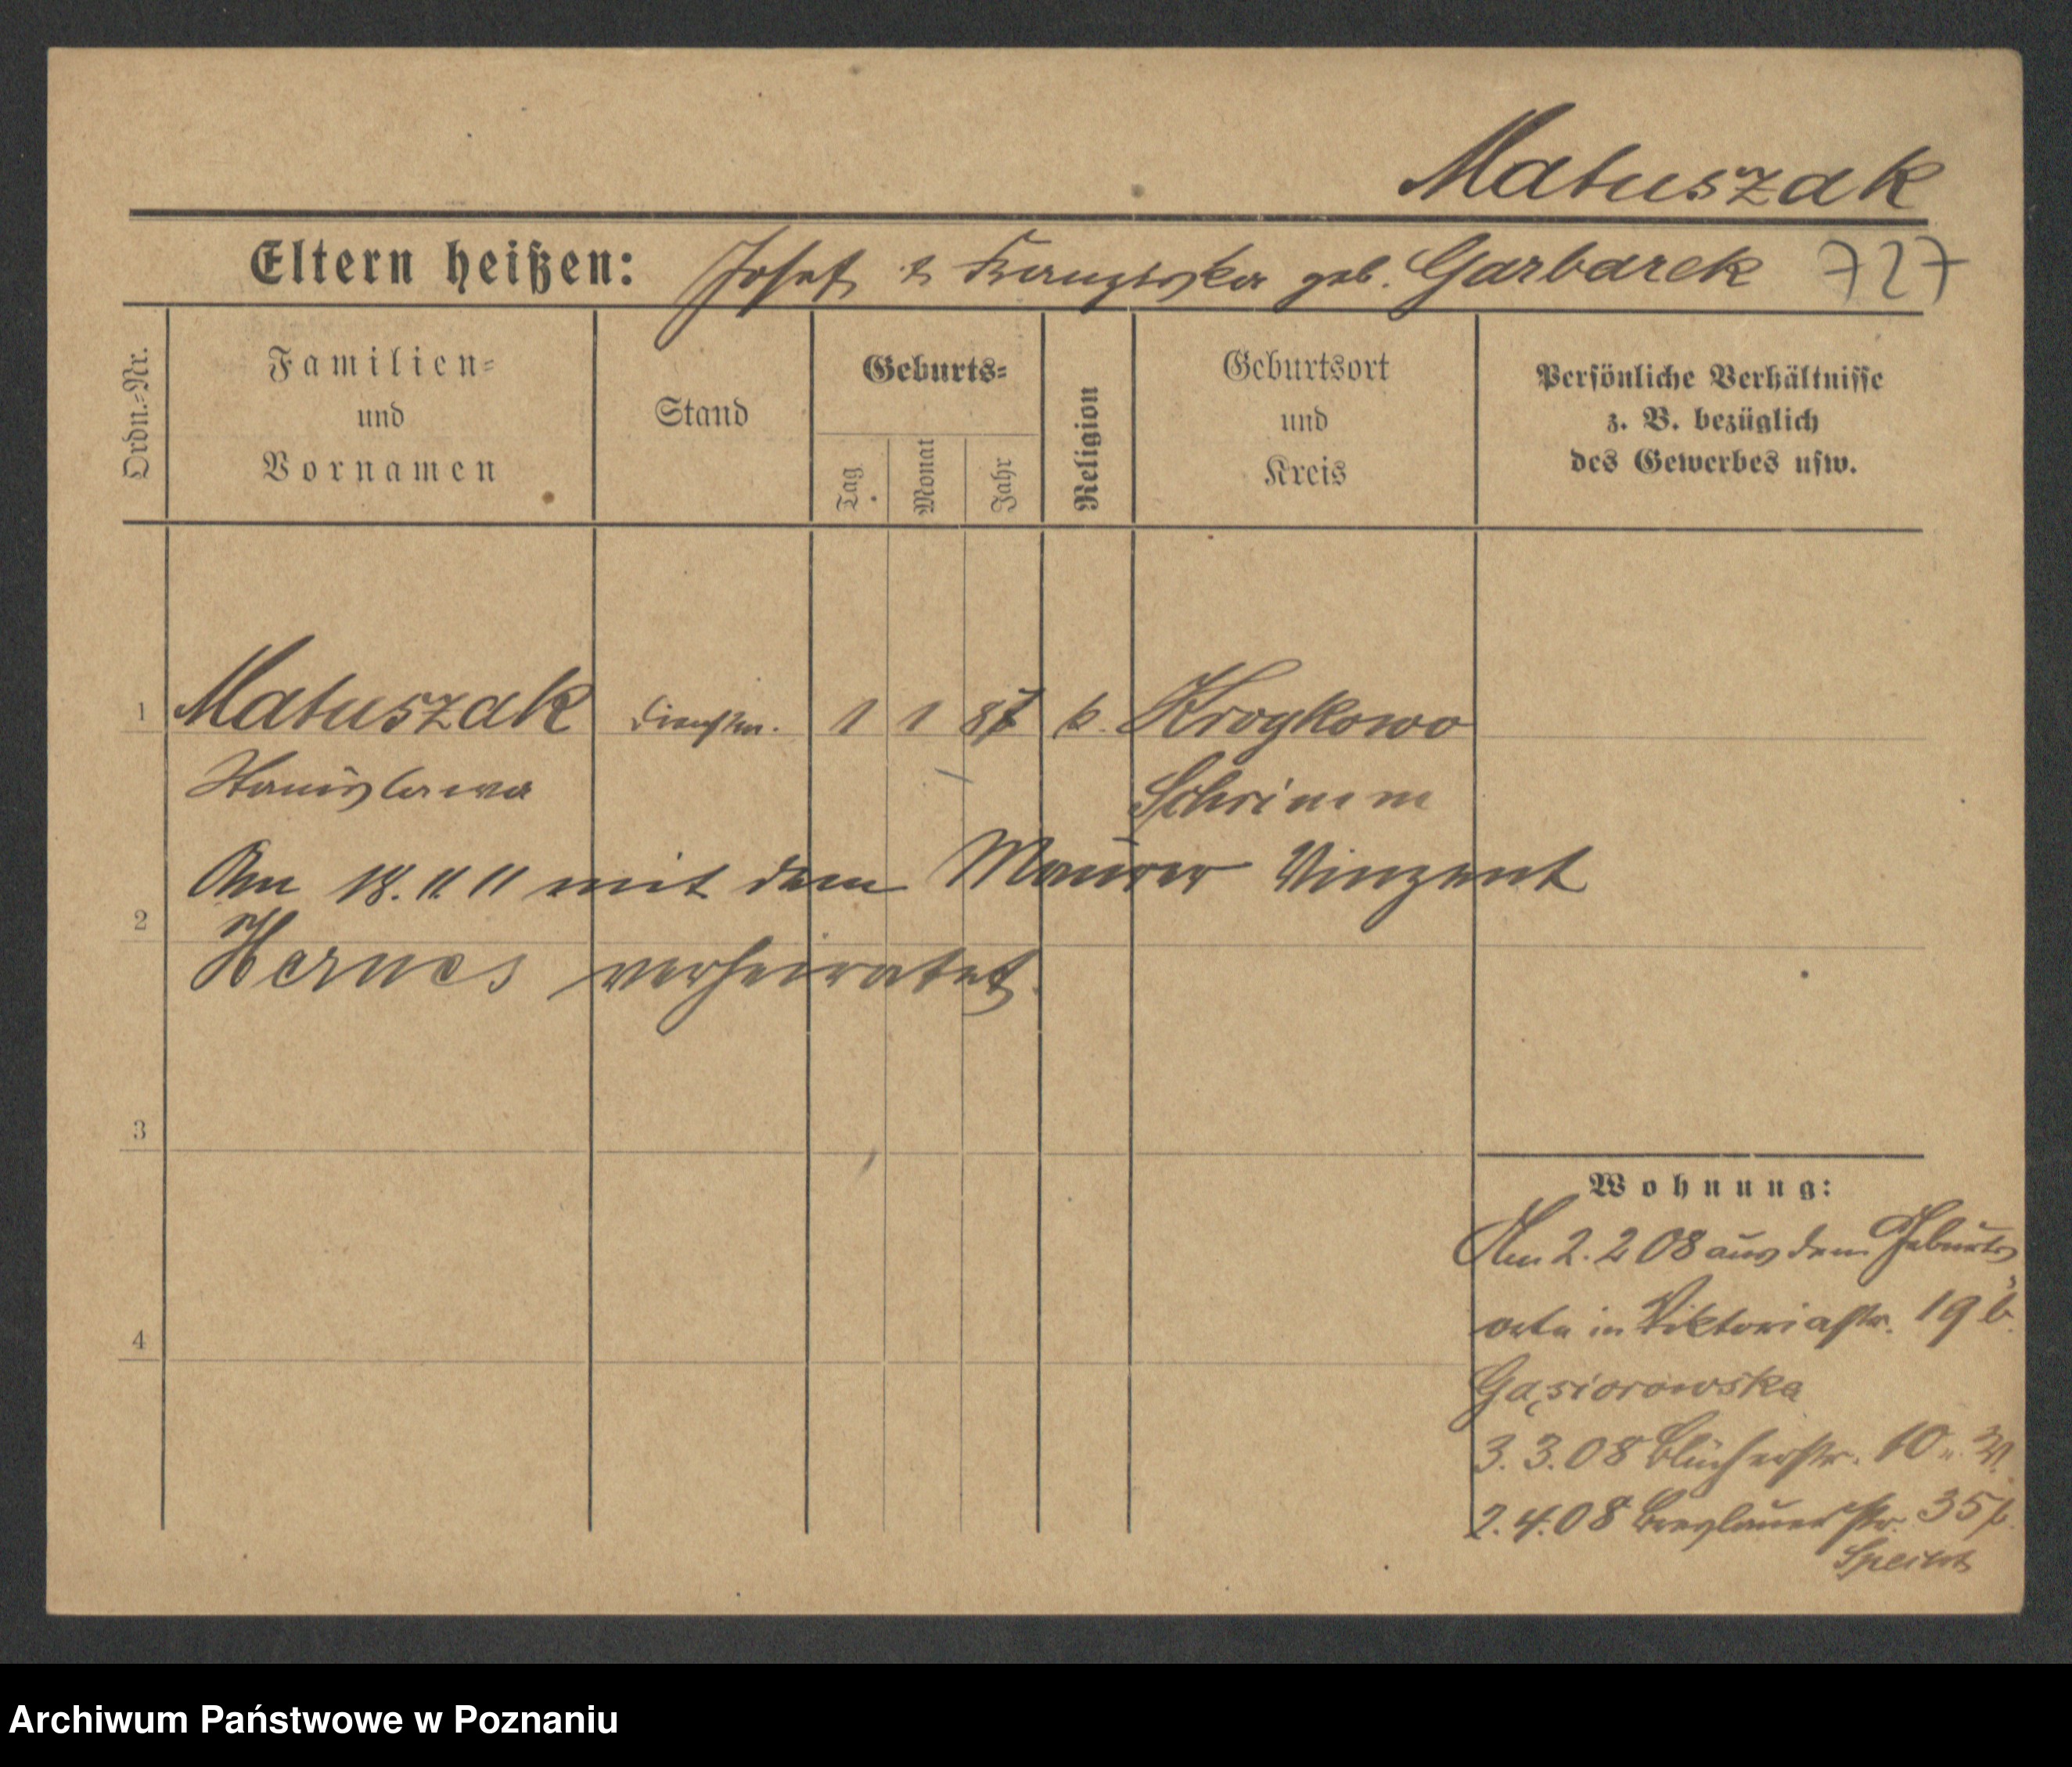 Matuszak
Eltern heißen: Josef & Franziska geb. Garbarek 727
Ordn.-Nr.
Familien-
und
Vornamen
Stand
Geburts-
Tag
Monat
Jahr
Religion
Geburtsort
und
Kreis
Persönliche Verhältnisse
z. B. bezüglich
des Gewerbes usw.
1 Matuszak Dienstm. 1 1 87 k. Krosikowo
Stanislawa Schrimm
Am 18.11.11 mit dem Maurer Vinzent
2
Hernes verheiratet.
3
Wohnung:
Am 2.2 08 aus dem Geburts
orte in Viktoriastr. 19 b.
4
Gąsiorowska
3.3.08 Blücherstr. 10
2.4.08 Breslauerstr. 35
Specht
Archiwum Państwowe w Poznaniu